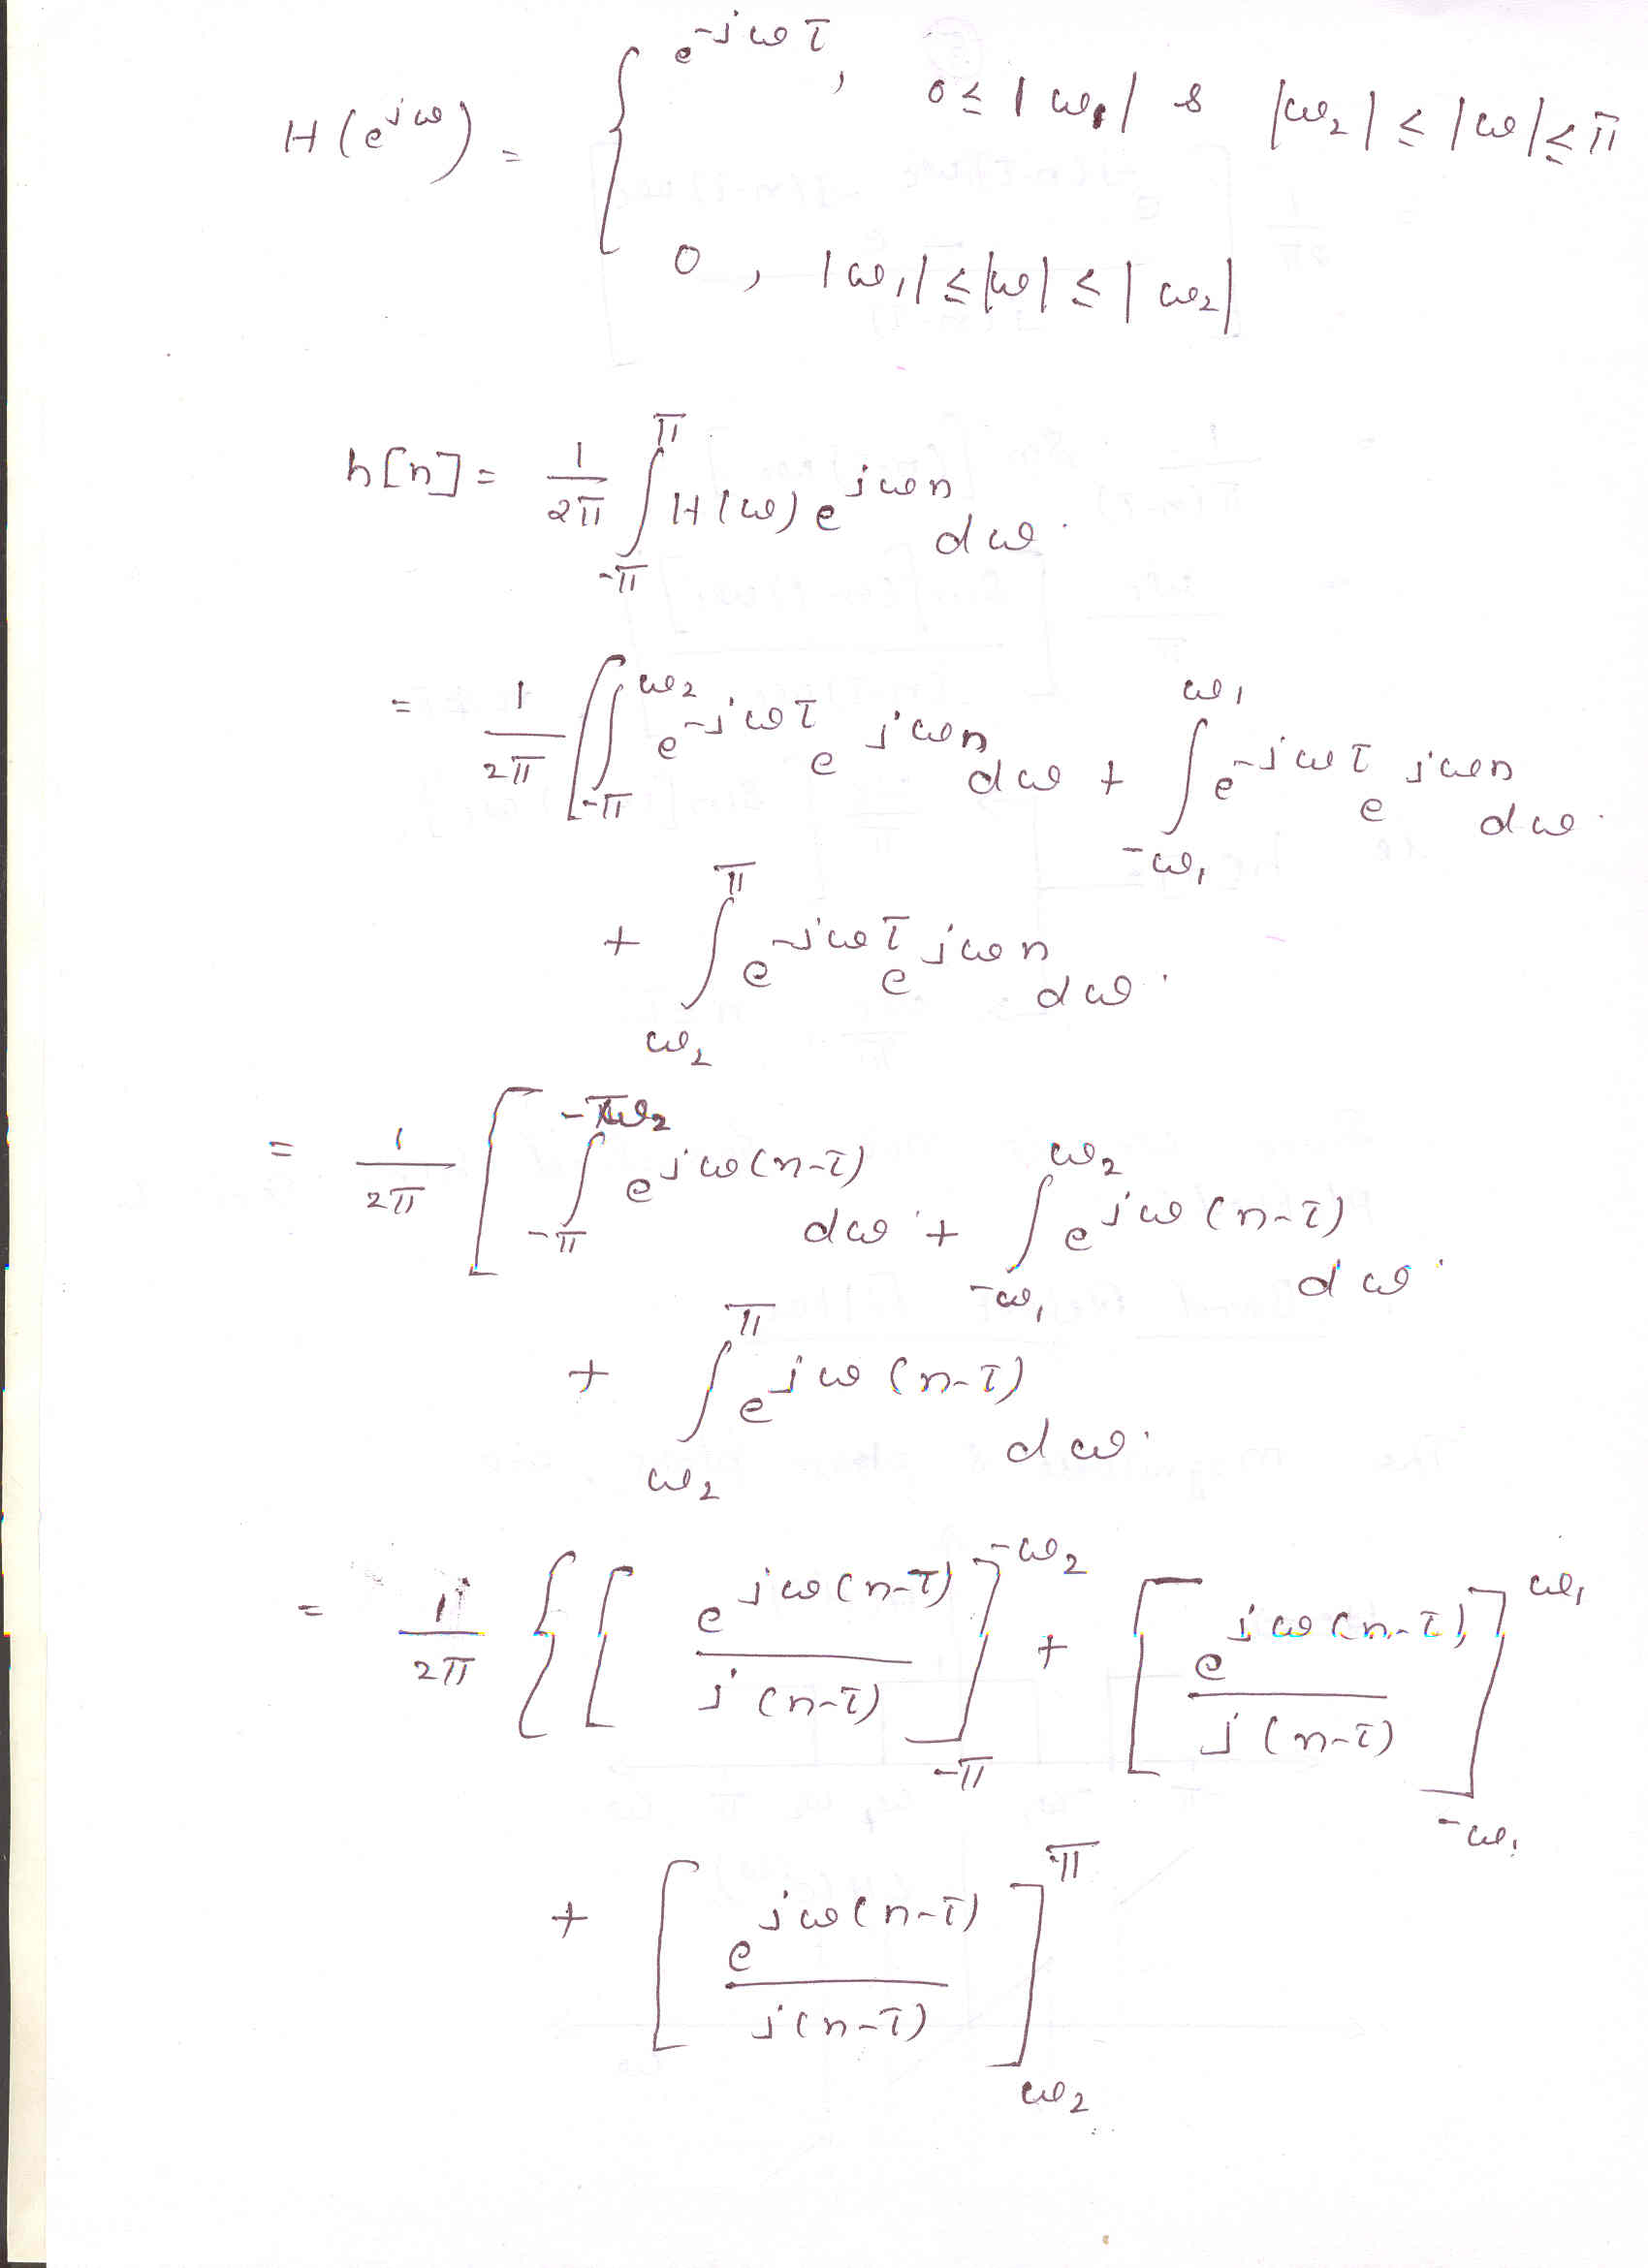 H(e^{jω}) = { e^{-jωτ}, 0 ≤ |ω₁| & |ω₂| ≤ |ω| ≤ π
0, |ω₁| ≤ |ω| ≤ |ω₂|
h[n] = 1/2π ∫_{-π}^{π} H(ω) e^{jωn} dω.
= 1/2π [ ∫_{-π}^{ω₂} e^{-jωτ} e^{jωn} dω + ∫_{-ω₁}^{ω₁} e^{-jωτ} e^{jωn} dω.
+ ∫_{ω₂}^{π} e^{-jωτ} e^{jωn} dω.
= 1/2π [ ∫_{-π}^{-ω₂} e^{jω(n-τ)} dω + ∫_{-ω₁}^{ω₂} e^{jω(n-τ)} dω.
+ ∫_{ω₂}^{π} e^{jω(n-τ)} dω.
= 1/2π { [ e^{jω(n-τ)} / j(n-τ) ]_{-π}^{-ω₂} + [ e^{jω(n-τ)} / j(n-τ) ]_{-ω₁}^{ω₁}
+ [ e^{jω(n-τ)} / j(n-τ) ]_{ω₂}^{π}